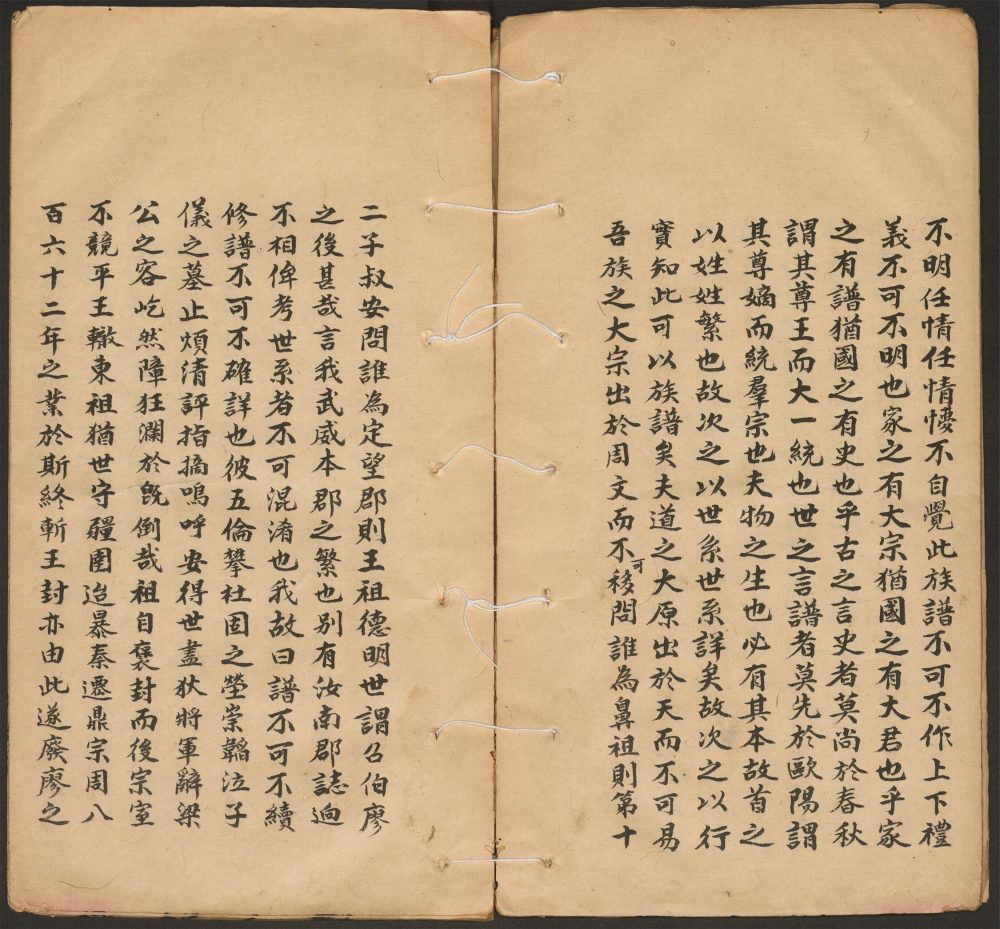 不明任情任情懮不自覺此族譜不可不作上下禮
義不可不明也家之有大宗猶國之有大君也乎家
之有譜猶國之有史也乎古之言史者莫尚於春秋
謂其尊王而大一統也世之言譜者莫先於歐陽謂
其尊嫡而統羣宗也夫物之生也必有其本故首之
以姓姓繁也故次之以世系世系詳矣故次之以行
實知此可以族譜矣夫道之大原出於天而不可易
吾族之大宗出於周文而不可移問誰為鼻祖則第十
二子叔安問誰為定望郡則王祖德明世謂召伯廖
之後甚哉言我武威本郡之繁也別有汝南郡誌逈
不相侔考世系者不可混淆也我故曰譜不可不續
修譜不可不確詳也彼五倫攀杜固之塋崇韜泣子
儀之墓止煩清評指摘嗚呼安得世盡狄將軍辭梁
公之容屹然障狂瀾於旣倒哉祖自褒封而後宗室
不競平王轍東祖猶世守疆圉迨暴秦遷鼎宗周八
百六十二年之業於斯終斬王封亦由此遂廢廖之